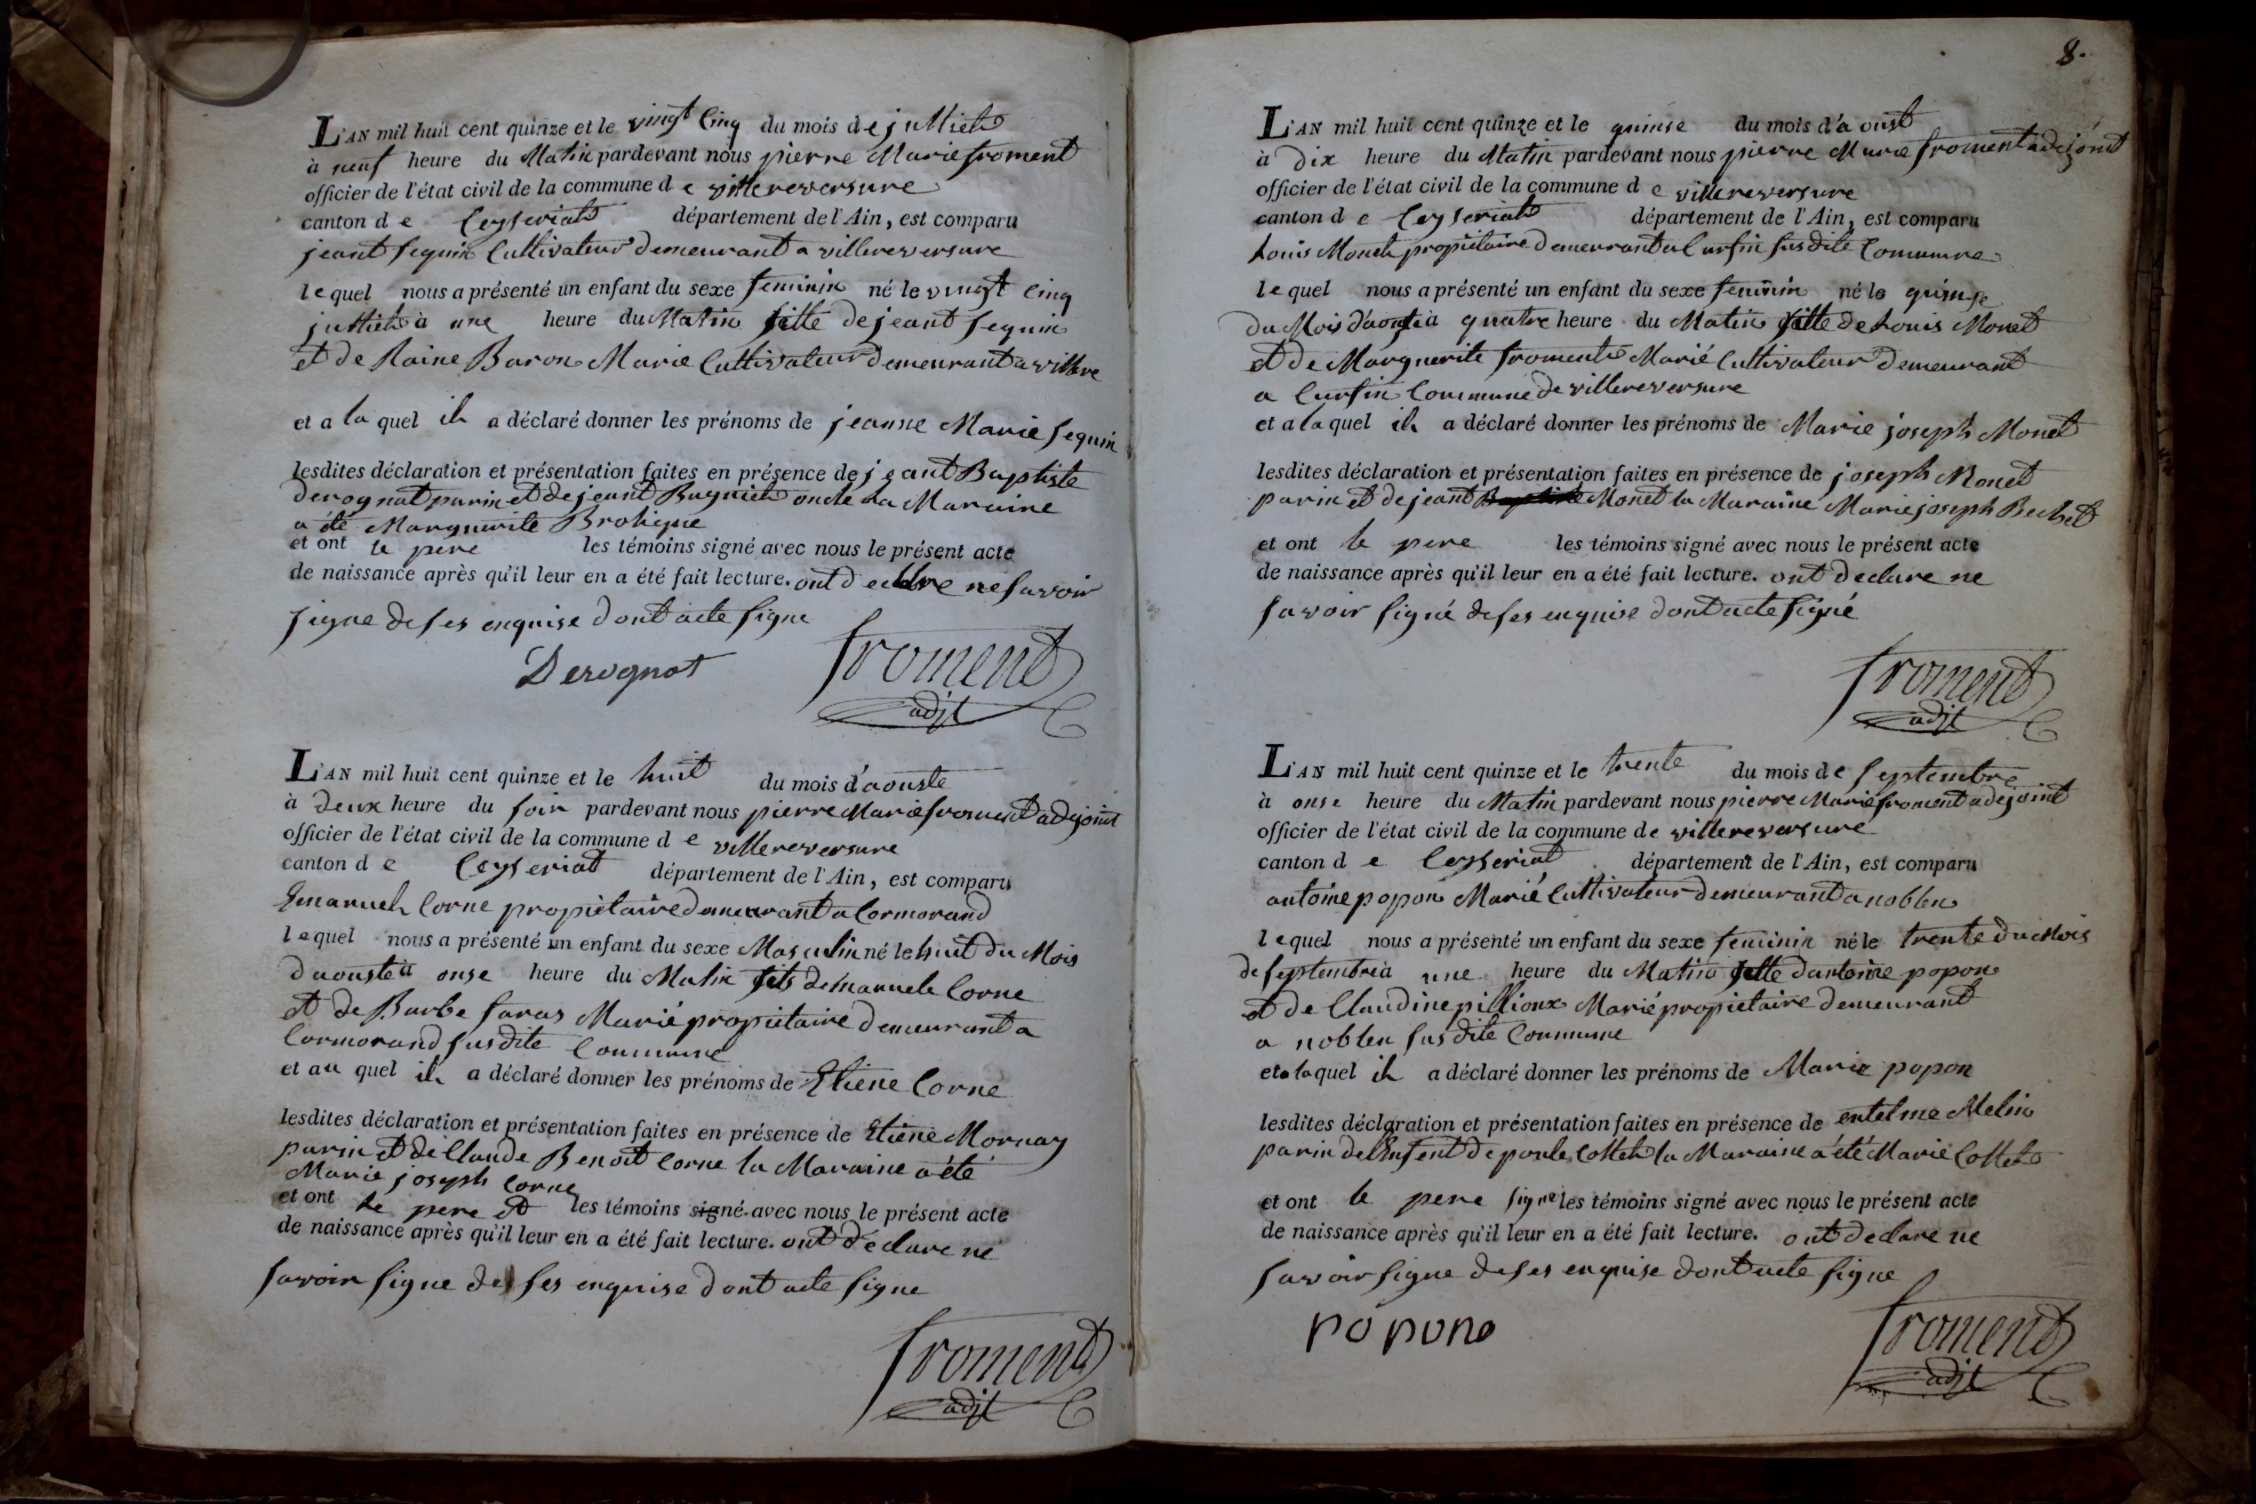 L'AN mil huit cent quinze et le vingt Cinq du mois de juilliet
à neuf heure du Matin pardevant nous pierre Marie froment
officier de l'état civil de la commune de villereversure
canton de Ceyseriat département de l'Ain, est comparu
jeant seguin Cultivateur demeurant a villereversure
lequel nous a présenté un enfant du sexe feminin né le vingt Cinq
juilliet à une heure du Matin fille de jeant seguin
et de Raine Baron Marie Cultivateur demeurant a villere
et a la quel il a déclaré donner les prénoms de jeanne Marie seguin
lesdites déclaration et présentation faites en présence de jeant Baptiste
derognat parin et de jeant oncle La Maraine
a été Marguerite
et ont le pere les témoins signé avec nous le présent acte
de naissance après qu'il leur en a été fait lecture. ont declare ne savoir
signe de ses enquise dont acte signe
Derognat froment
adjt
L'AN mil huit cent quinze et le huit du mois d'aouste
à deux heure du soir pardevant nous pierre Marie froment adejoint
officier de l'état civil de la commune de villereversure
canton de Ceyseriat département de l'Ain, est comparu
Emanuel Corne propiétaire demeurant a Cormorand
lequel nous a présenté un enfant du sexe Masculin né le huit du Mois
daouste à onse heure du Matin fils demanuele Corne
et de Barbe faras Marié propiétaire demeurant a
Cormorand susdite Commune
et au quel il a déclaré donner les prénoms de Etiene Corne
lesdites déclaration et présentation faites en présence de Etiene Mornay
parin et de Claude Benoit Corne la Maraine a été
Marie joseph Corne
et ont le pere et les témoins signé avec nous le présent acte
de naissance après qu'il leur en a été fait lecture. ont déclare ne
savoir signe de ses enquise dont acte signe
froment
adjt
8.
L'AN mil huit cent quinze et le quinse du mois d'a oust
à dix heure du Matin pardevant nous pierre Marie froment adejoint
officier de l'état civil de la commune de villereversure
canton de Ceyseriat département de l'Ain, est comparu
Louis Monet propiétaire demeurant a Cursin susdite Commune
lequel nous a présenté un enfant du sexe feminin né le quinse
du Mois d'aoust à quatre heure du Matin fille de Louis Monet
et de Marguerite froment Marié Cultivateur demeurant
a Cursin Commune de villereversure
et a la quel il a déclaré donner les prénoms de Marie joseph Monet
lesdites déclaration et présentation faites en présence de joseph Monet
parin et de jeant Baptiste Monet la Maraine Marie joseph Bechet
et ont le pere les témoins signé avec nous le présent acte
de naissance après qu'il leur en a été fait lecture. ont declare ne
savoir signé de ses enquise dont acte signé
froment
adjt
L'AN mil huit cent quinze et le trente du mois de septembre
à onse heure du Matin pardevant nous pierre Marie froment adejoint
officier de l'état civil de la commune de villereversure
canton de Ceyseriat département de l'Ain, est comparu
antoine popon Marié Cultivateur demeurant a noblen
lequel nous a présenté un enfant du sexe feminin né le trente du Mois
de septembre à une heure du Matin fille dantoine popon
et de Claudine pillioux Marié propietaire demeurant
a noblen susdite Commune
et a laquel il a déclaré donner les prénoms de Marie popon
lesdites déclaration et présentation faites en présence de entelme Melin
parin de l'Enfent de poule Collet la Maraine a été Marie Collet
et ont le pere signe les témoins signé avec nous le présent acte
de naissance après qu'il leur en a été fait lecture. ont declare ne
savoir signe de ses enquise dont acte signe
popone froment
adjt